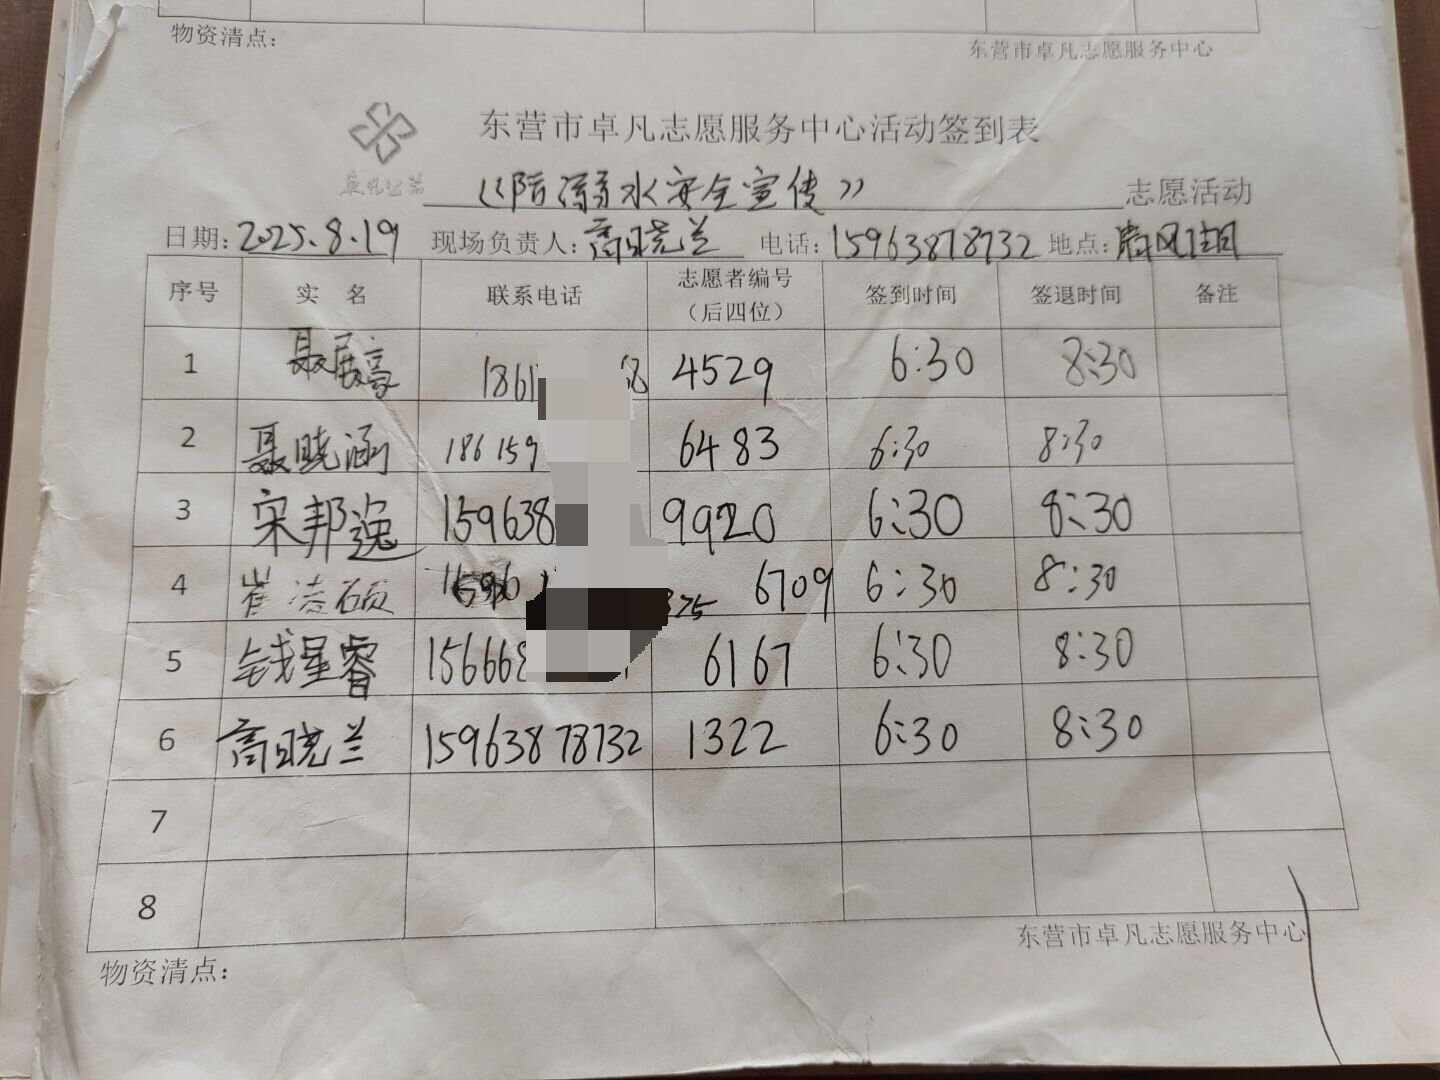 物资清点：
东营市卓凡志愿服务中心
东营市卓凡志愿服务中心活动签到表
卓凡公益
《防溺水安全宣传》 志愿活动
日期：2025.8.19 现场负责人：高晓兰 电话：15963878732 地点：清风湖
序号 实 名 联系电话 志愿者编号（后四位） 签到时间 签退时间 备注
1 聂展豪 1861 68 4529 6:30 8:30
2 聂晓涵 186159 6483 6:30 8:30
3 宋邦逸 159638 9920 6:30 8:30
4 崔 硕 375 6709 6:30 8:30
5 钱星睿 156668 6167 6:30 8:30
6 高晓兰 15963878732 1322 6:30 8:30
7
8
东营市卓凡志愿服务中心
物资清点：